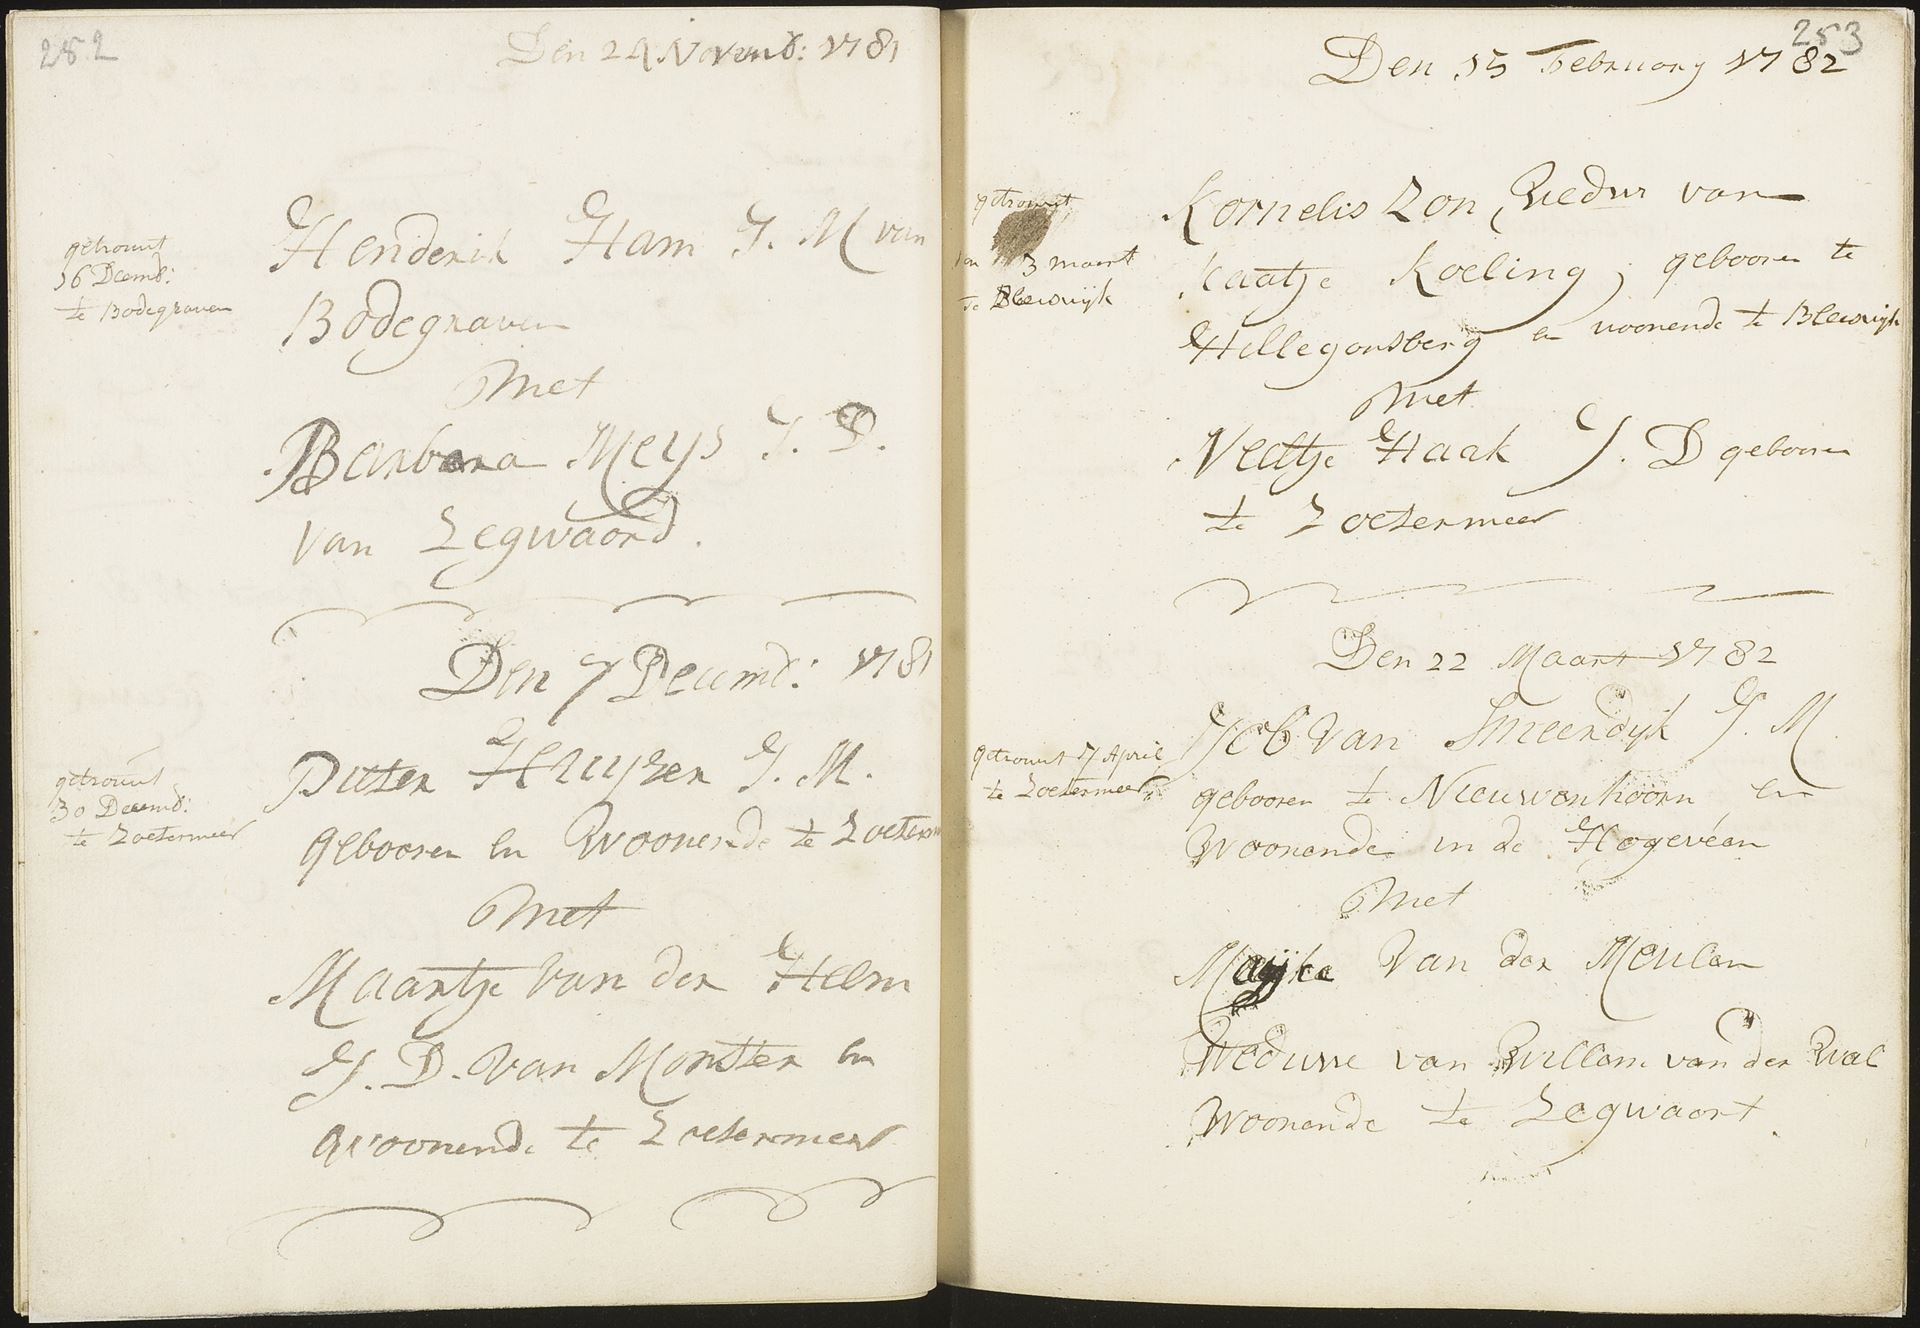 252
Den 24 Novemb: 1781
getrouwt
16 Decemb:
te Bodegraven
Henderik Ham J. M van
Bodegraven
Met
Barbara Meys J. D.
van Zegwaard.
Den 7 Decemb: 1781
getrouwt
30 Decemb:
te Zoetermeer
Pieter Kruyzer J. M.
gebooren en Woonende te Zoeterm
Met
Maartje van der Helm
J. D. van Monster en
woonende te Zoetermeer
253
Den 15 February 1782
getrouwt
den 3 maart
te Bleiswijk
Kornelis Zon, Wedur van
Kaatje Koeling, gebooren te
Hillegonsberg en woonende te Bleiswijk
Met
Neeltje Haak J. D gebooren
te Zoetermeer
Den 22 Maart 1782
getrouwt 7 April
te Zoetermeer
Job van Smeerdyk J. M
gebooren te Nieuwenhoorn en
Woonende in de Hogeveen
Met
Maijke van der Meulen
Weduwe van Willem van der Wal
Woonende te Zegwaart.